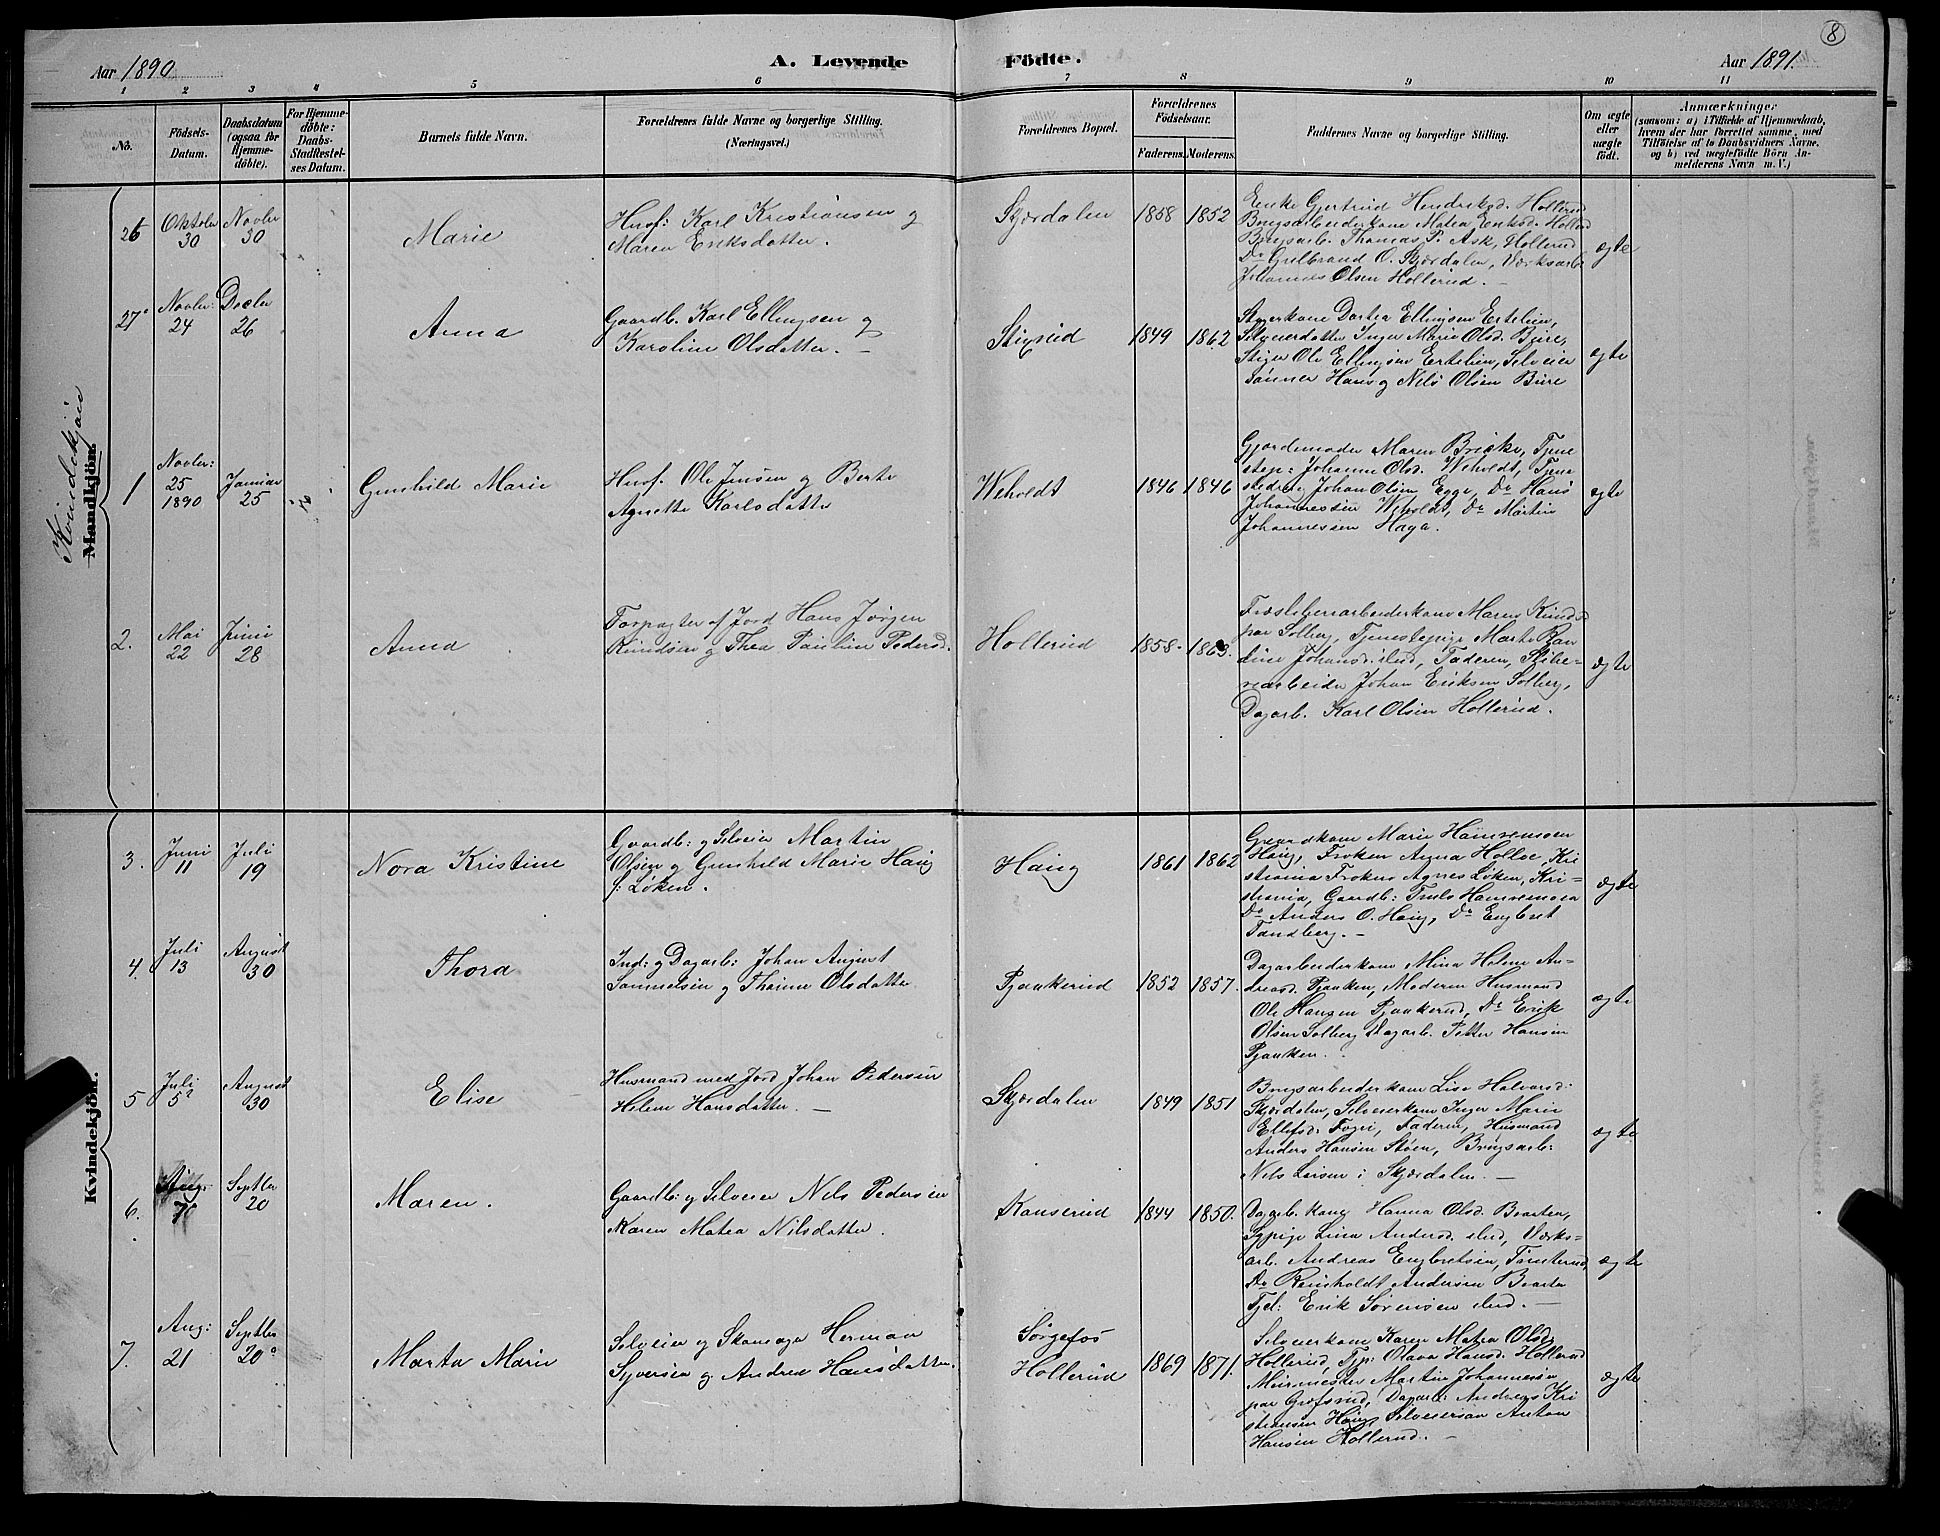 8
Aar 1890
A. Levende Födte.
Aar 1891.
1 2 3 4 5 6 7 8 9 10 11
No.
Födsels-
Datum.
Daabsdatum
(ogsaa for
Hjemme-
döbte).
For Hjemme-
döbte:
Daabs-
Stadfæstel-
ses Datum.
Barnets fulde Navn.
Forældrenes fulde Navne og borgerlige Stilling.
(Næringsvei.)
Forældrenes Bopæl.
Forældrenes
Födselsaar.
Faderens. Moderens.
Faddernes Navne og borgerlige Stilling.
Om ægte
eller
uægte
födt.
Anmærkninger
(saasom: a) i Tilfælde af Hjemmedaab,
hvem der har forrettet samme, med
Tilföielse af to Daabsvidners Navne,
og b) ved uægtefödte Börn An-
melderens Navn m. V.)
Kvindekjøn
Mandkjön.
26
Oktober
30
Novbr
30
Marie
Husf: Karl Kristiansen og
Maren Eriksdatter.
Skjærdalen
1858 1852
Enke Gjertrud Hendriksd. Hollerud
Brugsarbeiderkone Matea Eriksd. Hollerud
Brugsarb. Thomas P. Ask, Hollerud
Do Gulbrand O. Skjærdalen, Værksarb.
Johannes Olsen Hollerud. —
ægte
27
Novbr:
24
Decbr
26
Anna
Gaardb. Karl Ellingsen og
Karoline Olsdatter. —
Stixrud
1849 1862
Dortea Ellingsen Ertelien,
Selveierdatter Inger Marie Olsd. Bure,
Stiger Ole Ellingsen Ertelien, Selveier
sønner Hans og Nils Olsen Bure
ægte
1
Novbr:
25
1890
Januar
25
Gunhild Marie
Husf. Ole Jensen og Berte
Agnette Karlsdatter
Weholdt
1846 1846
Gjordemoder Maren Bricke, Tjene
step: Johanne Olsd. Weholdt, Tjene
stedr. Johan Olsen Egge, Do Hans
Johannessen Weholdt, Do Martin
Johannessen Haga.
ægte
2.
Mai
22
Juni
28
Anna
Forpagter af Jord Hans Jørgen
Knudsen og Thea Pauline Pedersd.
Hollerud
1858. 1863.
Træsliberiarbeiderkone Maren Knudsd
paa Solberg, Tjenestepige Marte Ran
dine Johansd. ibid, Faderen, Slibe=
riarbeider Johan Eriksen Solberg,
Dagarb. Karl Olsen Hollerud.
ægte
Kvindekjön.
3.
Juni
11
Juli
19
Nora Kristine
Gaardb: og Selveier Martin
Olsen og Gunhild Marie Haug
f: Løken.
Haug
1861 1862
Gaardkone Marie Hamremoen
Haug, Frøken Anna Holloe, Kri
stiania Frøken Agnes Løken, Kri=
stiania, Gaardb: Truls Hamremoen
Do Anders O. Haug, Do Engbret
Tandberg. —
ægte
4.
Juli
13
August
30
Thora
Ind: og Dagarb: Johan August
Samuelsen og Thorine Olsdatter
Pjaakerud
1852 1857.
Dagarbeiderkone Mina Helene An=
dreasd. Pjaaken, Moderen Husmand
Ole Hansen Pjaakerud, Do Erik
Olsen Solberg Dagarb. Petter Hansen
Pjaaken.
ægte
5
Juli
5
August
30
Elise
Husmand med Jord Johan Pedersen
Helene Hansdatter. —
Skjærdalen
1849 1851
Brugsarbeiderkone Lise Halvorsd:
Skjærdalen, Selveierkone Inger Marie
Ellefsd: Fogri, Faderen, Husmand
Anders Hansen Støen, Brugsarb:
Nils Larsen i Skjærdalen. —
ægte
6.
Aug.
7
Septbr
20
Maren.
Gaardb: og Selveier Nils Pedersen
Karen Matea Nilsdatter.
Kanserud
1844 1850.
Dagarb. kone Hanna Olsd. Braaten,
Sypige Lina Andersd. ibid, Værks=
arb. Andreas Engbretsen,
Do Reinholdt Andersen Braaten
Tjd: Erik Sørensen ibid. —
ægte
7.
Aug:
21
Septbr
20
Marta Marie
Selveier og Skomager Herman
Syversen og Andrea Hansdatter.
Sørgefos
Hollerud
1869 1871.
Selveierkone Karen Matea Olsd
Hollerud, Tjp: Olava Hansd. Hollerud
Murmester Martin Johannesen
paa Grøfsrud, Dagarb: Andreas Kri
stiansen Haug Selveiersøn Anton
Hansen Hollerud. —
ægte